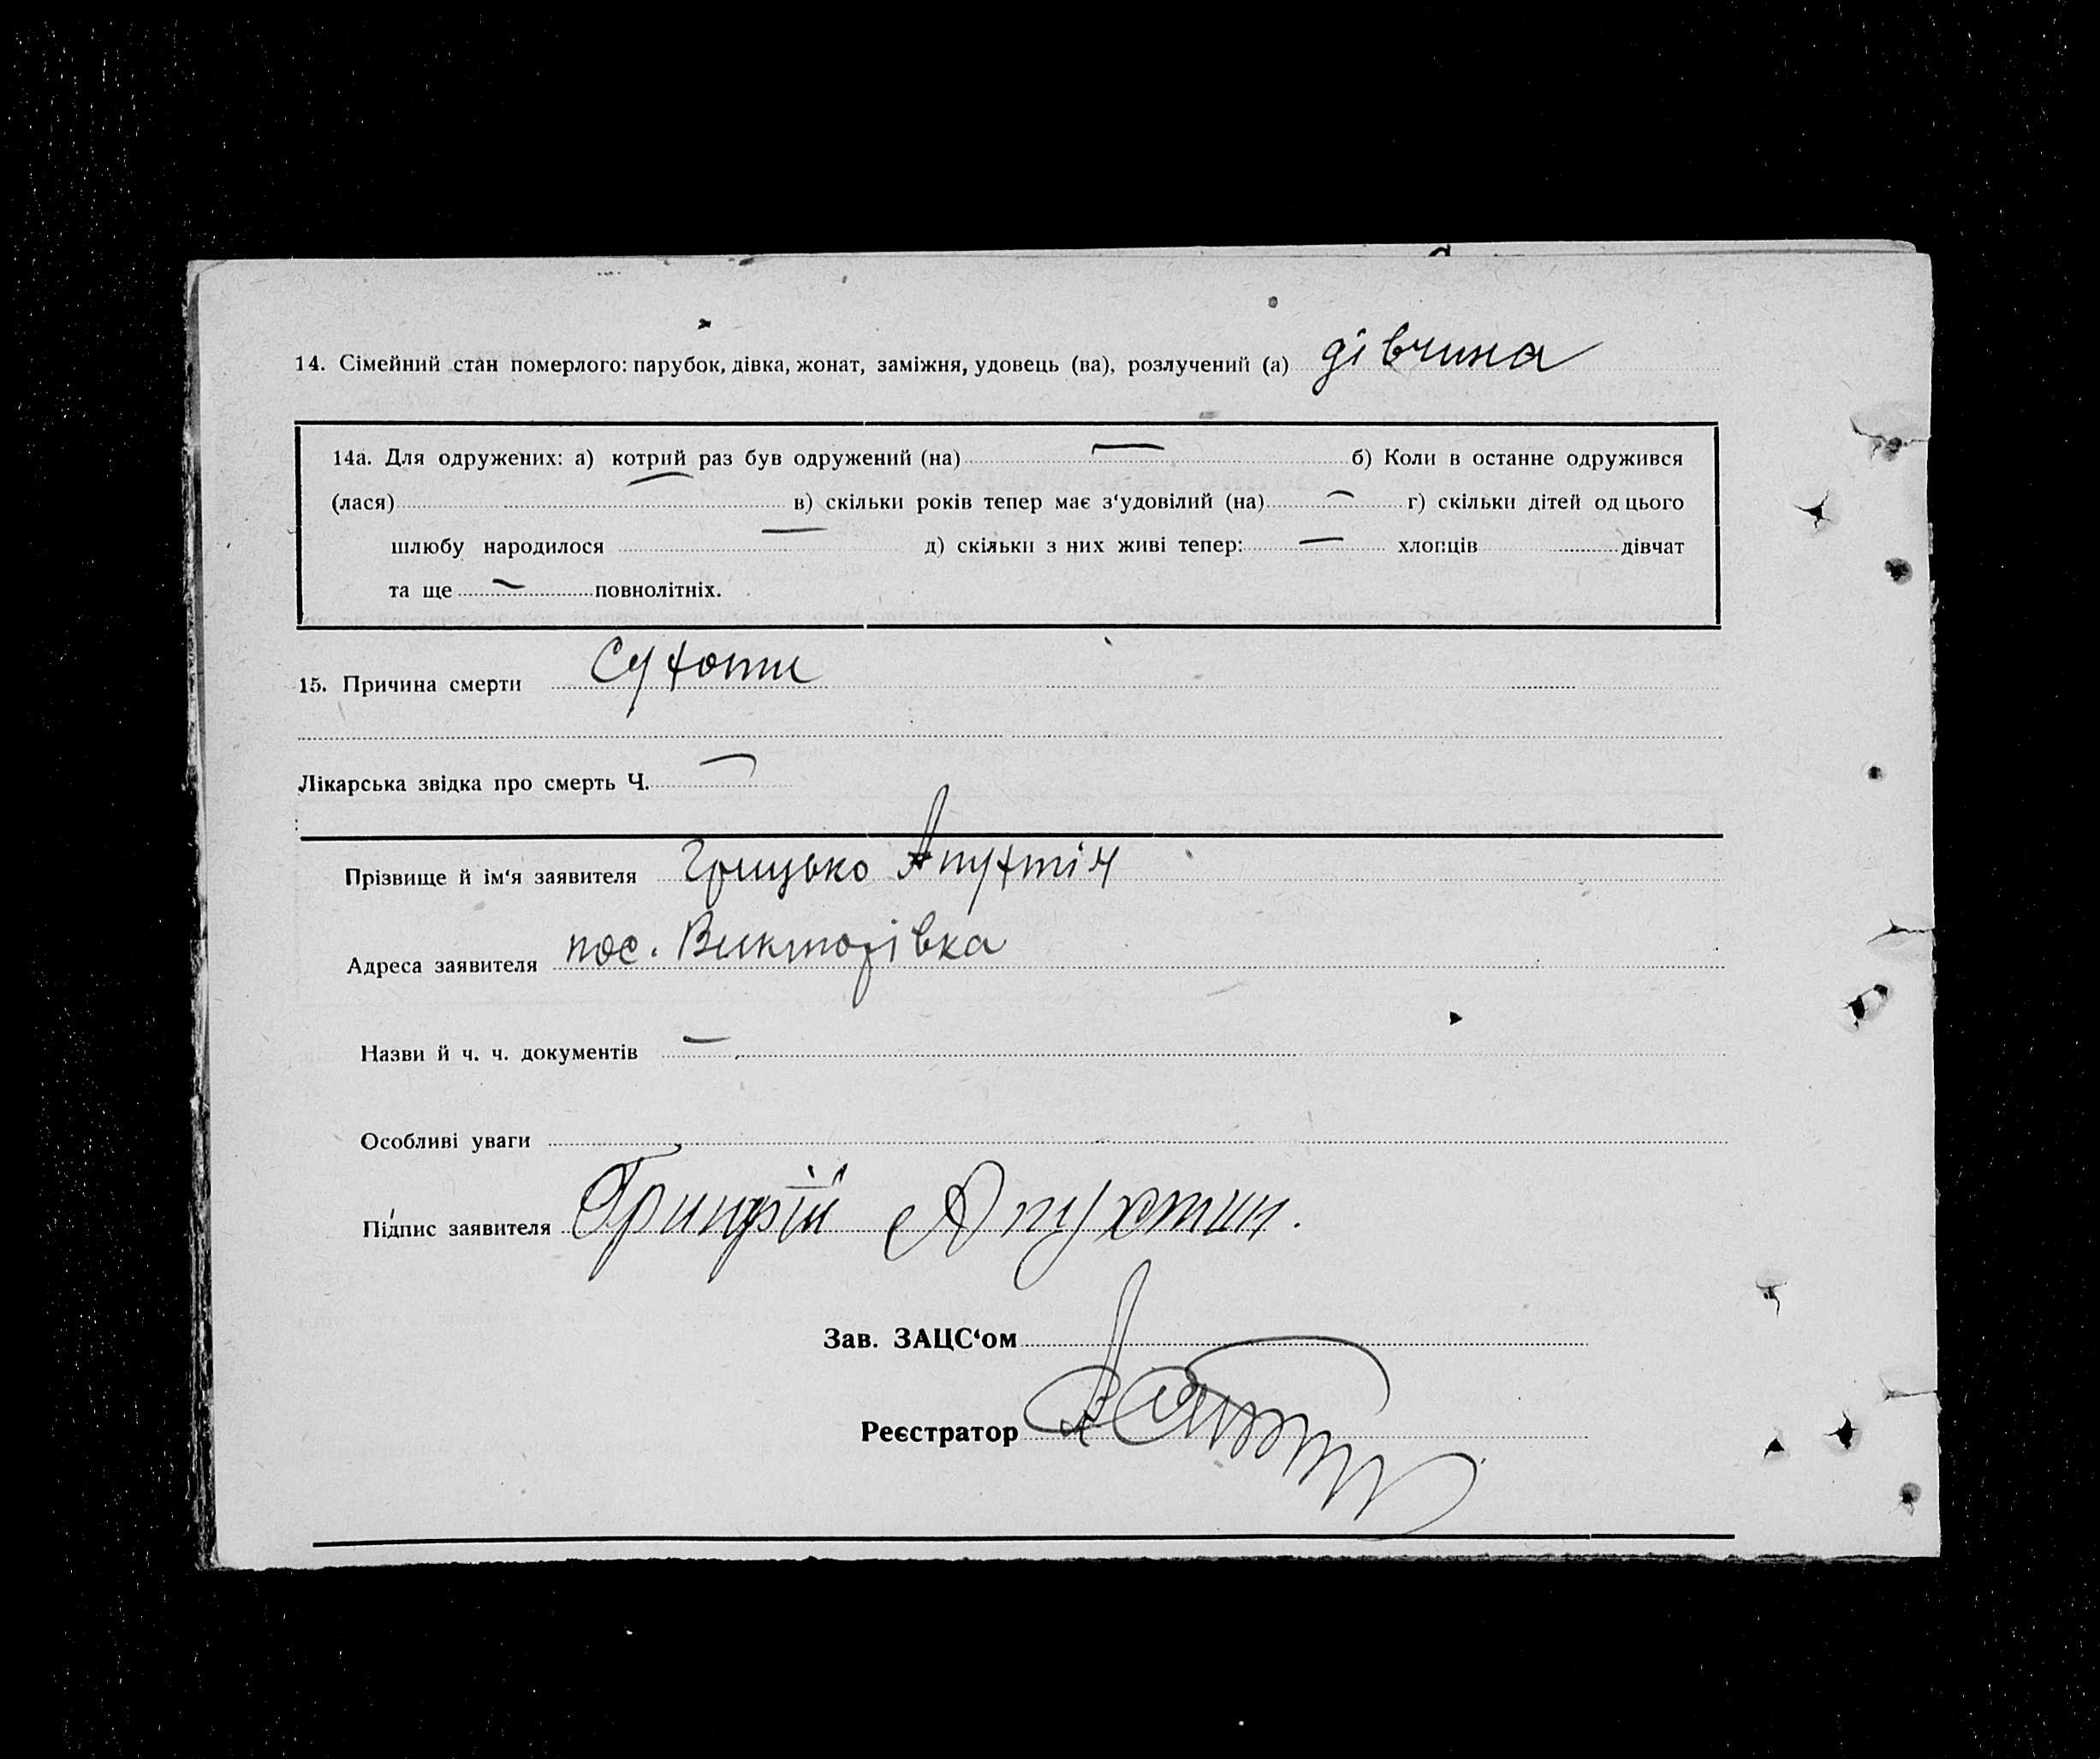 14. Сімейний стан померлого: парубок, дівка, жонат, заміжня, удовець (ва), розлучений (а) дівчина
14а. Для одружених: а) котрий раз був одружений (на) — б) Коли в останне одружився
(лася) — в) скільки років тепер має з‘удовілий (на) — г) скільки дітей од цього
шлюбу народилося — д) скільки з них живі тепер: — хлопців дівчат
та ще — повнолітніх.
15. Причина смерти Сухоти
Лікарська звідка про смерть Ч. —
Прізвище й ім‘я заявителя Грицько Апухтін
Адреса заявителя пос. Викторівка
Назви й ч. ч. документів —
Особливі уваги
Підпис заявителя Апухтин.
Зав. ЗАЦС‘ом
Реєстратор